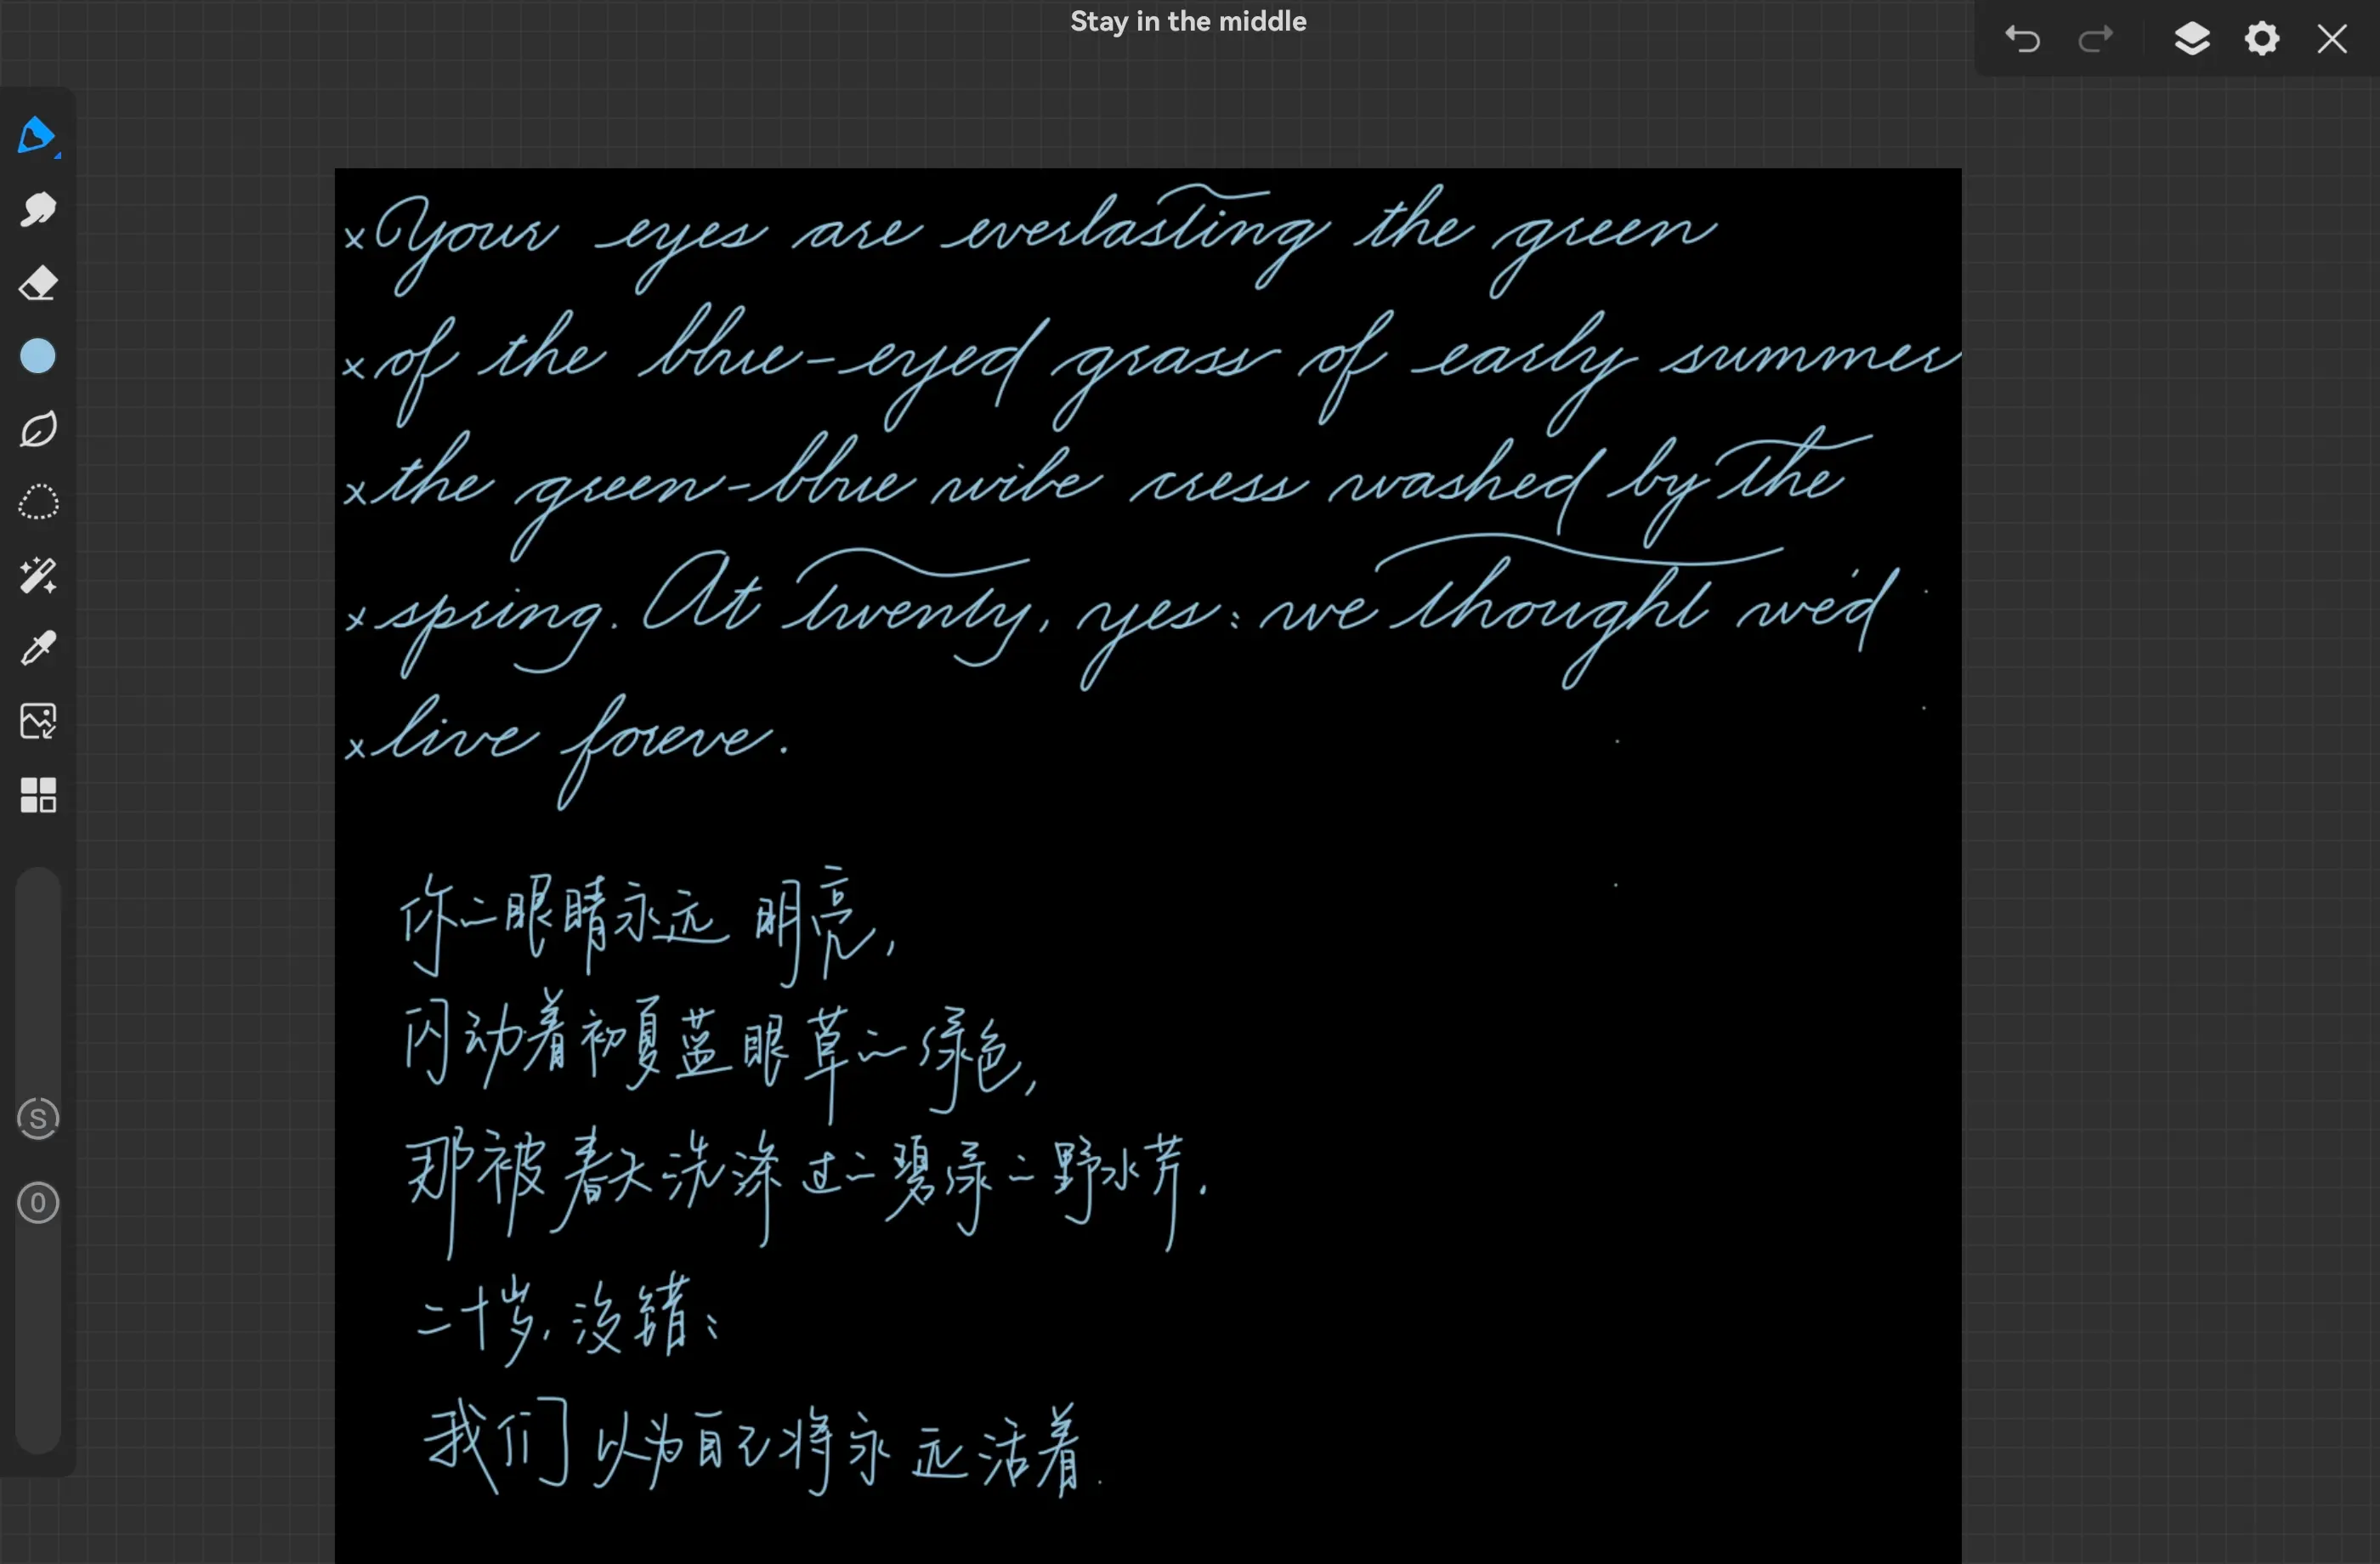 Stay in the middle
×Your eyes are everlasting the green
×of the blue-eyed grass of early summer
×the green-blue wibe cress washed by the
×spring. At twenty, yes: we thought we'd
×live foreve.
你的眼睛永远明亮,
闪动着初夏蓝眼草的绿色,
那被春天洗涤过的碧绿的野水芹.
二十岁,没错:
我们以为自己将永远活着.
S
O